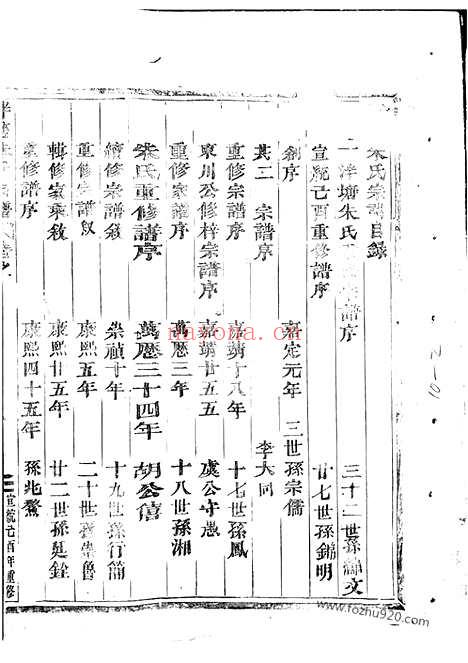 朱氏宗譜目錄
洋塘朱氏 譜序 三十二世孫 文
宣統己酉重修譜序 廿七世孫錦明
創序 嘉定元年 三世孫宗儒
其二 宗譜序 李大同
重修宗譜序 嘉靖十八年 十七世孫鳳
東川公修梓宗譜序 嘉靖廿五五 虞公守愚
重修家譜序 萬曆三年 十八世孫湘
朱氏重修譜序 萬曆三十四年 胡公僖
續修宗譜敘 崇禎十年 十九世孫行簡
重修宗譜敘 康熙五年 二十世孫 魯
輯修家乘敘 康熙廿五年 廿二世孫莫銓
修譜序 康熙四十五年 孫兆鰲
宣統己酉年重修
10-2
navona.cn
www.fozhu9797.com